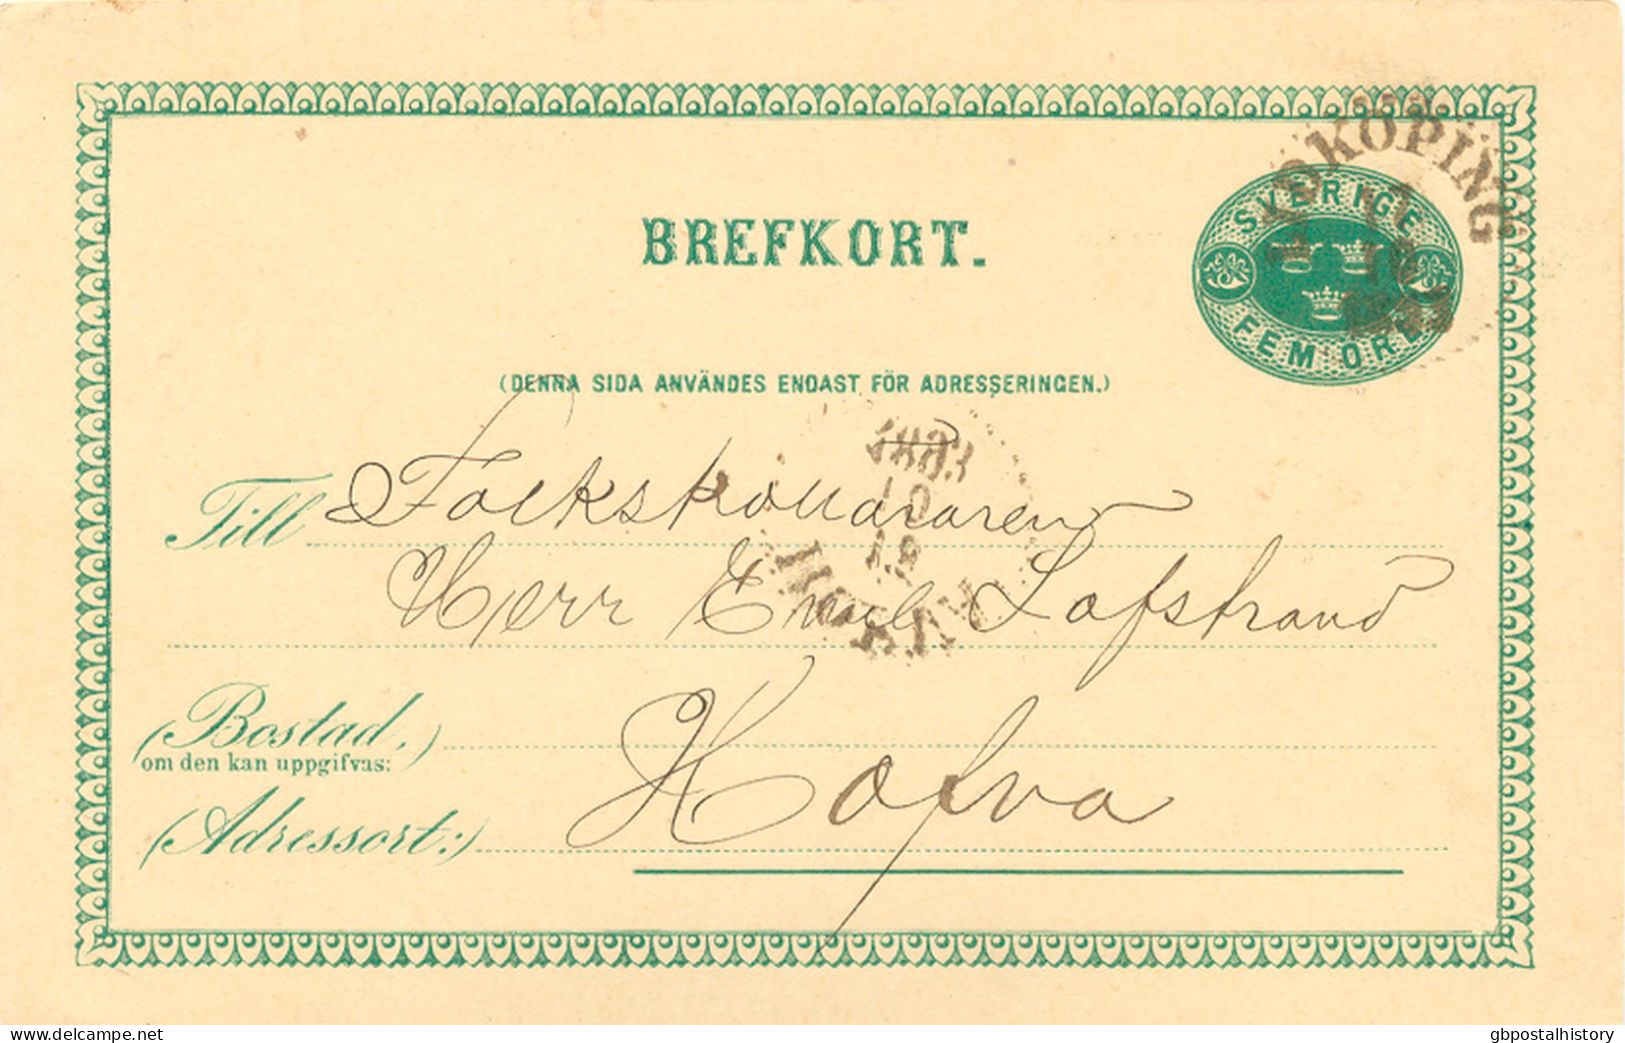 BREFKORT.
SVERIGE
FEM ÖRE
(DENNA SIDA ANVÄNDES ENDAST FÖR ADRESSERINGEN.)
1883
10
Till Folkskolläraren
Herr Emil Löfstrand
(Bostad,)
om den kan uppgifvas:
Hofva
(Adressort:)
www.delcampe.net
gbpostalhistory